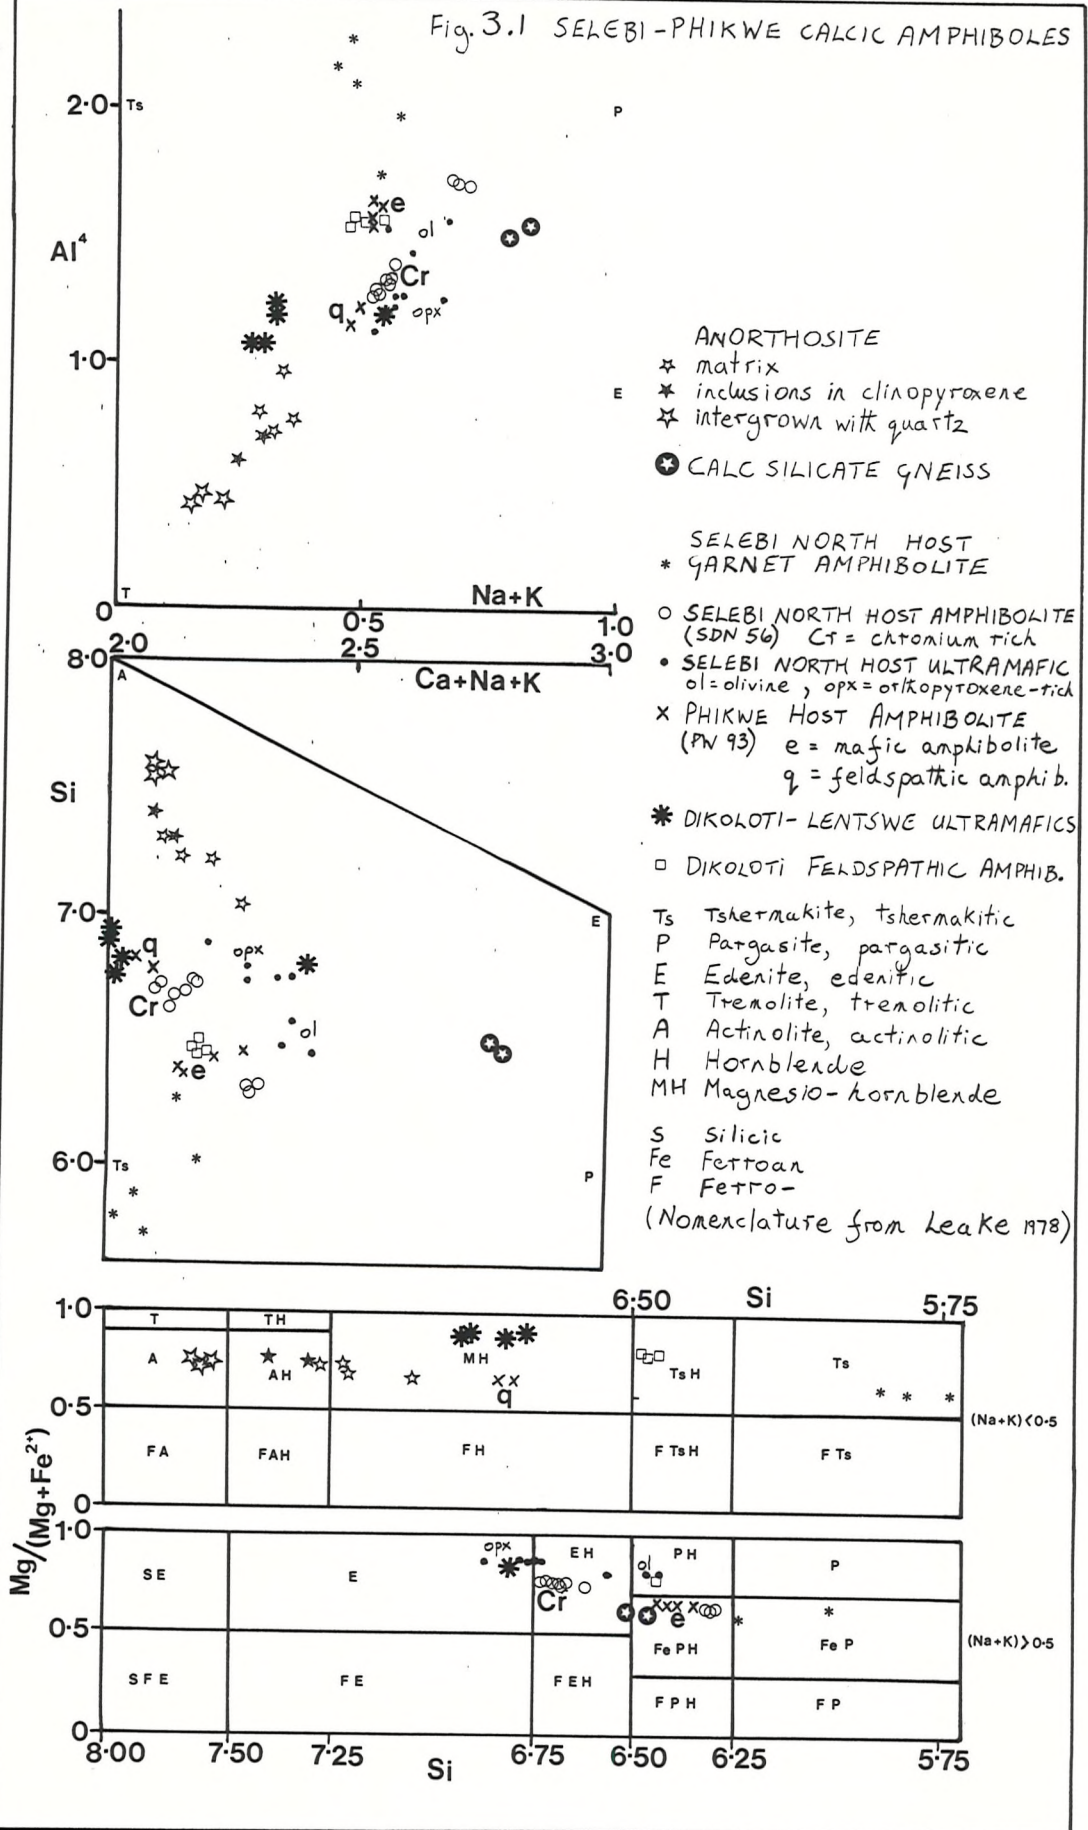 Fig. 3.1 SELEBI-PHIKWE CALCIC AMPHIBOLES
2·0
Ts
P
e
ol
Al⁴
Cr
q
opx
1·0
E
T
0
Na+K
0·5
1·0
ANORTHOSITE
matrix
inclusions in clinopyroxene
intergrown with quartz
CALC SILICATE GNEISS
SELEBI NORTH HOST
* GARNET AMPHIBOLITE
SELEBI NORTH HOST AMPHIBOLITE
(SDN 56) Cr = chromium rich
SELEBI NORTH HOST ULTRAMAFIC
ol = olivine, opx = orthopyroxene-rich
x PHIKWE HOST AMPHIBOLITE
(PW 93) e = mafic amphibolite
q = feldspathic amphib.
DIKOLOTI-LENTSWE ULTRAMAFICS
DIKOLOTI FELDSPATHIC AMPHIB.
Ts Tshermakite, tshermakitic
P Pargasite, pargasitic
E Edenite, edenitic
T Tremolite, tremolitic
A Actinolite, actinolitic
H Hornblende
MH Magnesio-hornblende
S Silicic
Fe Ferroan
F Ferro-
(Nomenclature from Leake 1978)
2·0
2·5
3·0
8·0
A
Ca+Na+K
Si
7·0
E
q
opx
Cr
ol
e
6·0
Ts
P
6·50
Si
5·75
1·0
T
TH
A
AH
MH
q
TsH
Ts
0·5
(Na+K)<0·5
FA
FAH
FH
F TsH
F Ts
0
Mg/(Mg+Fe²⁺)
1·0
SE
E
opx
EH
ol
PH
P
Cr
e
0·5
Fe PH
Fe P
(Na+K)>0·5
SFE
FE
FEH
FPH
FP
0
8·00
7·50
7·25
6·75
6·50
6·25
5·75
Si